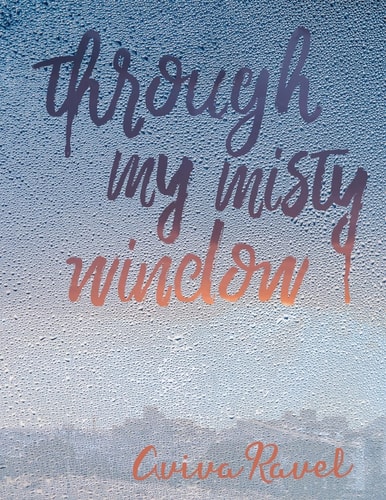 through
my misty
window
Aviva Ravel